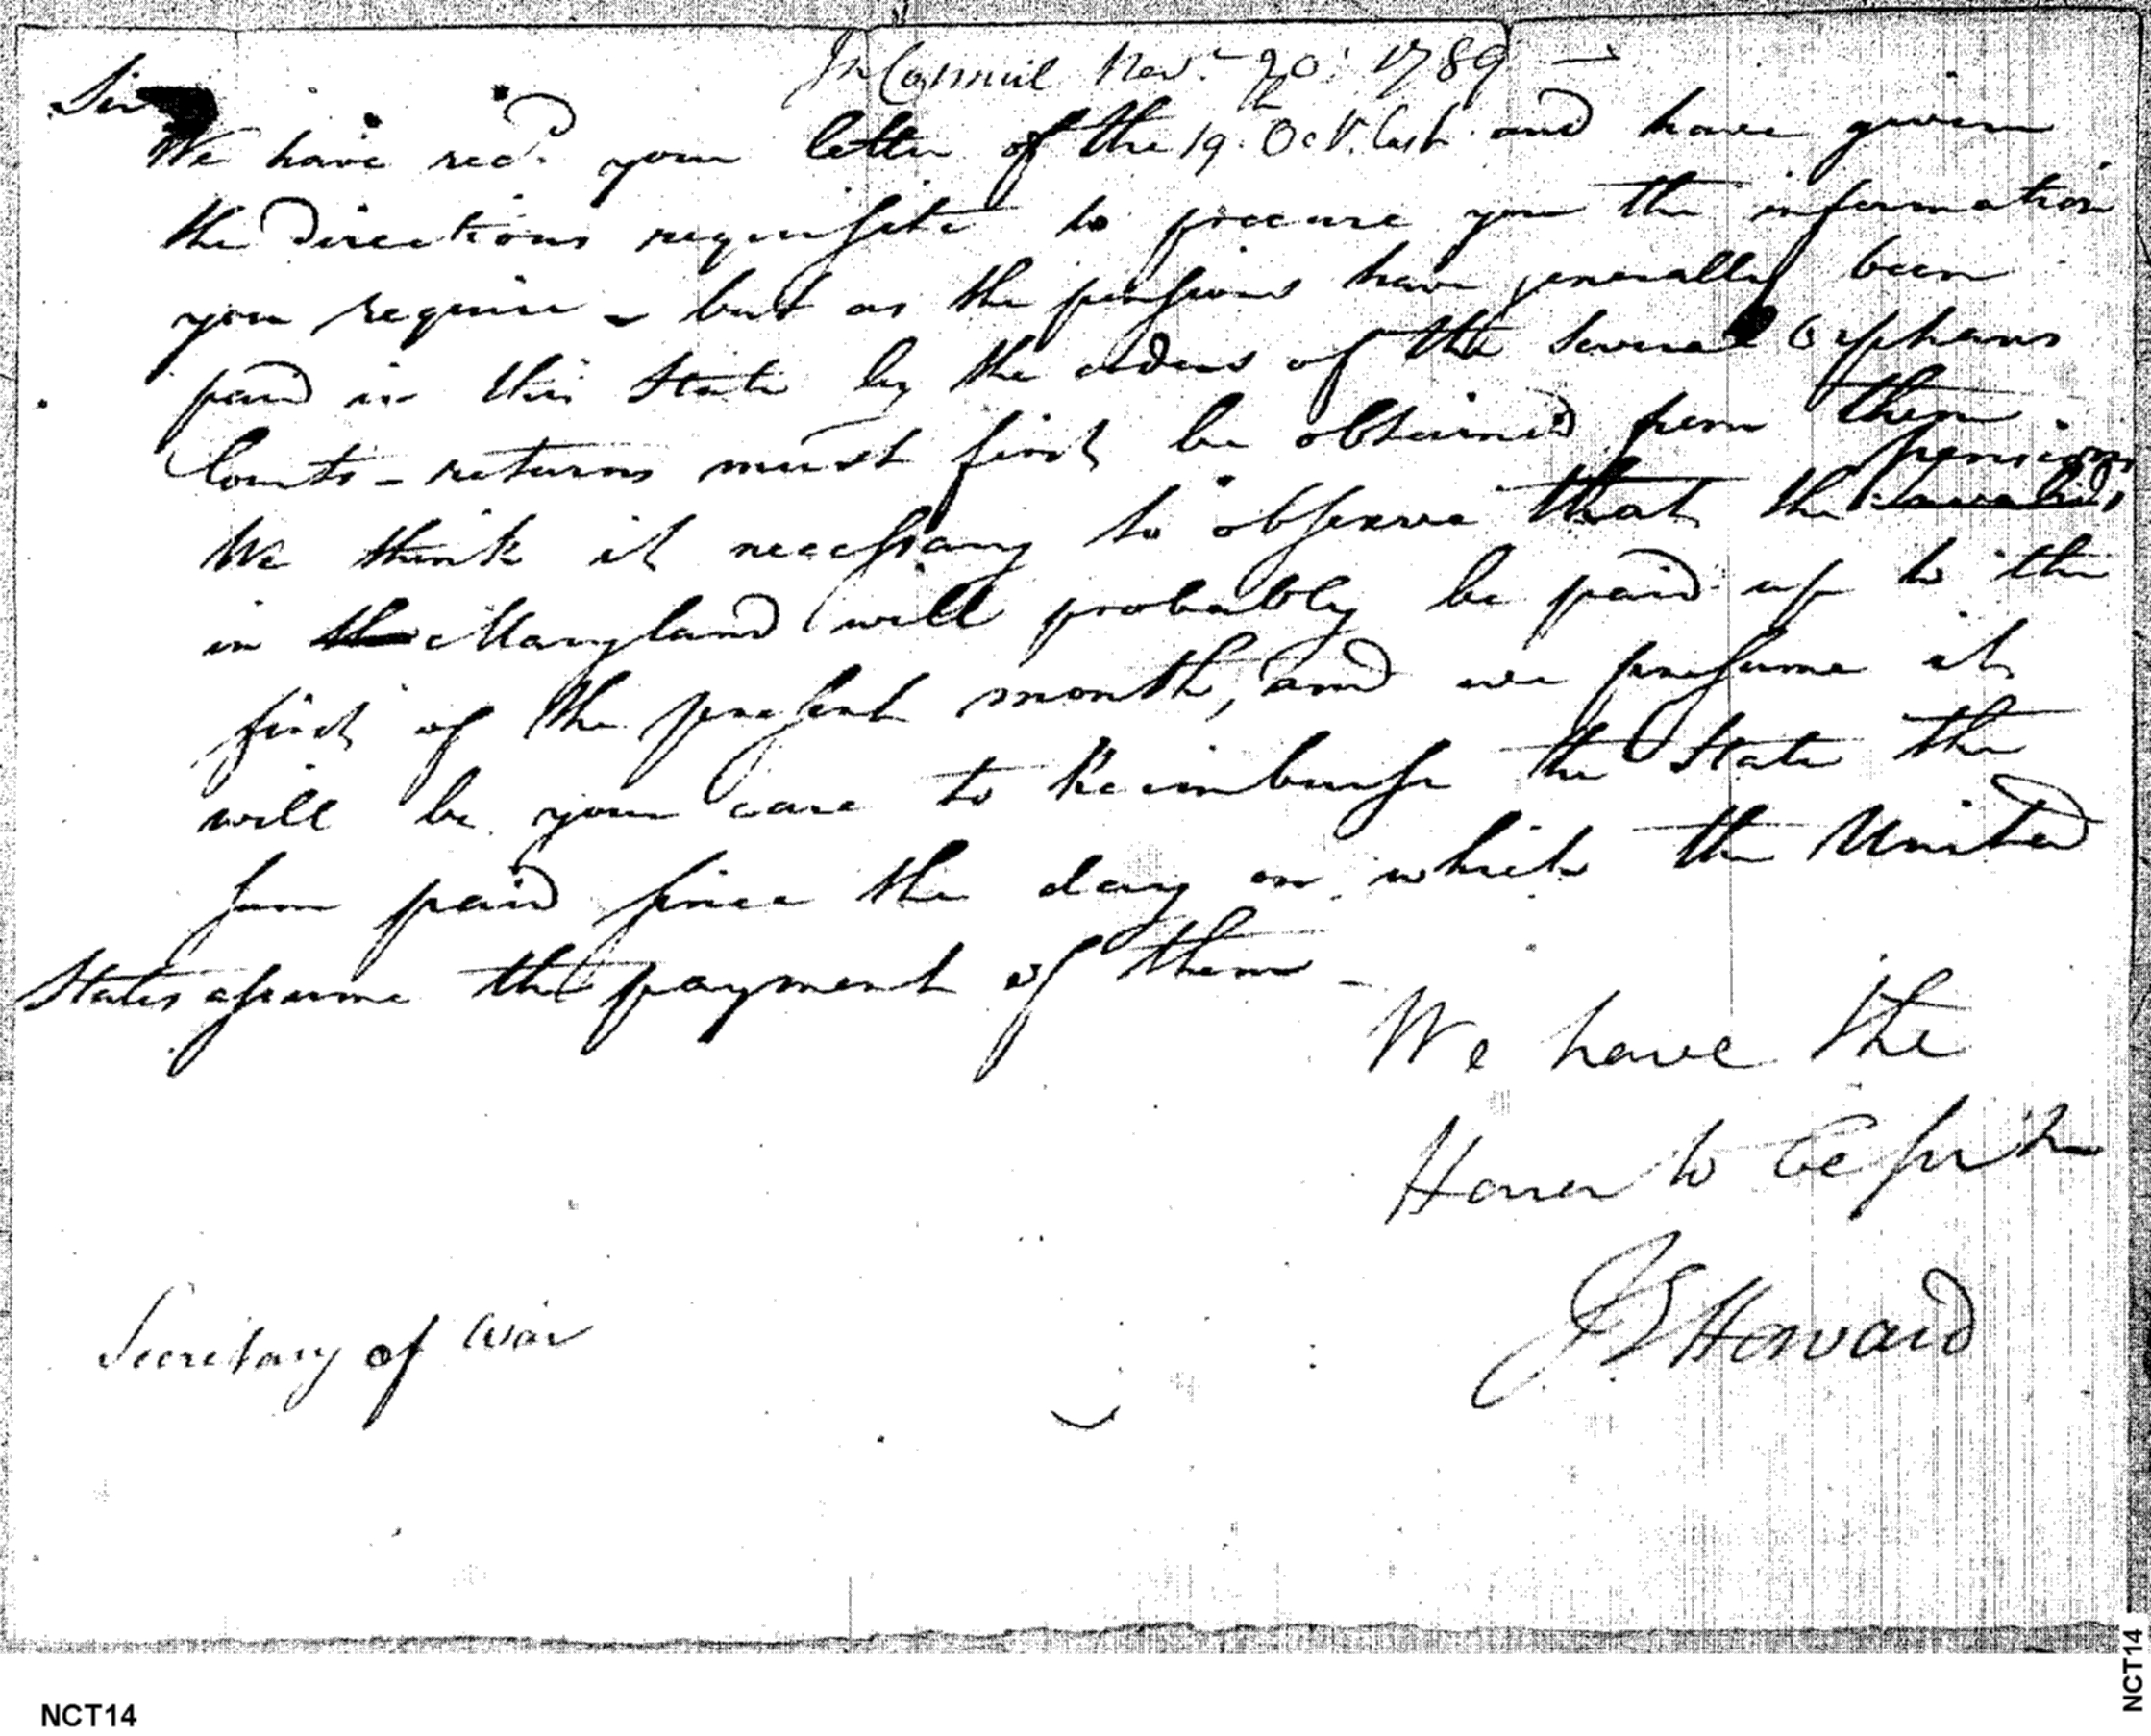 In Council Nov.r 20: 1789 —
Sir
We have rec.d your letter of the 19. Oct. last and have given
the directions requisite to procure you the information
you require - but as the pensions have generally been
paid in this State by the orders of the several Orphans
Courts - returns must first be obtained from them
pensions
We think it necessary to observe that the invalids
in the Maryland will probably be paid up to the
first of the present month, and we presume it
will be your care to Reimburse the State the
sum paid since the day on which the United
States assume the payment of them -
We have the
Honor to be
J E Howard
Secretary of War
NCT14
NCT14